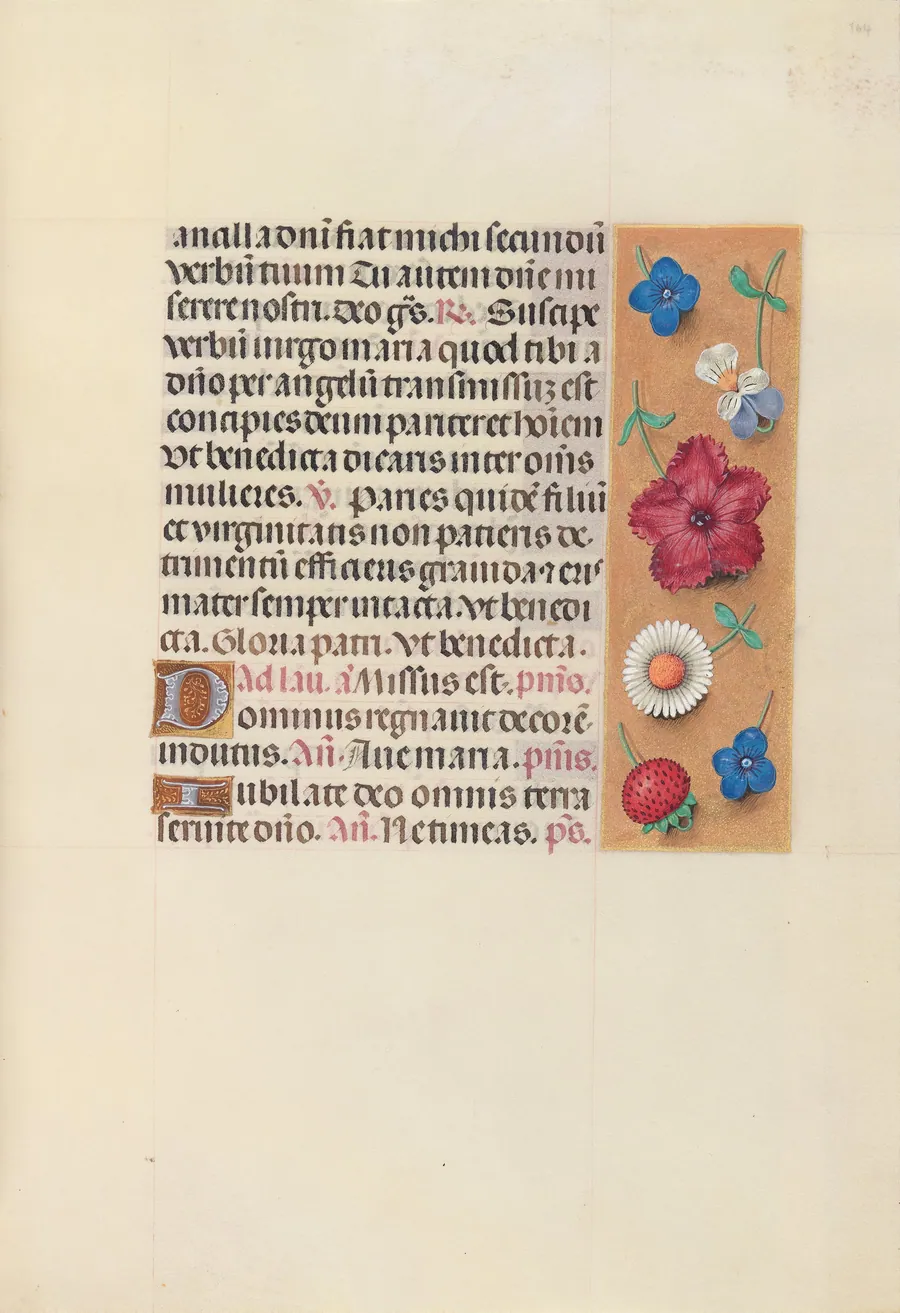 164
ancilla dnī fiat michi secundū
verbū tuum Tu autem dñe mi
serere nostri. deo gr̃s. R. Suscipe
verbū uirgo maria quod tibi a
dño per angelū transmissuz est
concipies deum pariter et hoīem
Vt benedicta dicaris inter om̄s
mulieres. V. Paries quidē filiū
et virginitatis non patieris de
trimentū efficieris grauida ⁊ eris
mater semper intacta. vt benedi
cta. Gloria patri. Vt benedicta.
Ad lau. a᷎ Missus est. pm̄s.
Dominus regnauit decorē
indutus. Añ. Aue maria. pm̄s.
Iubilate deo omnis terra
seruite dño. Añ. Ne timeas. ps̄.